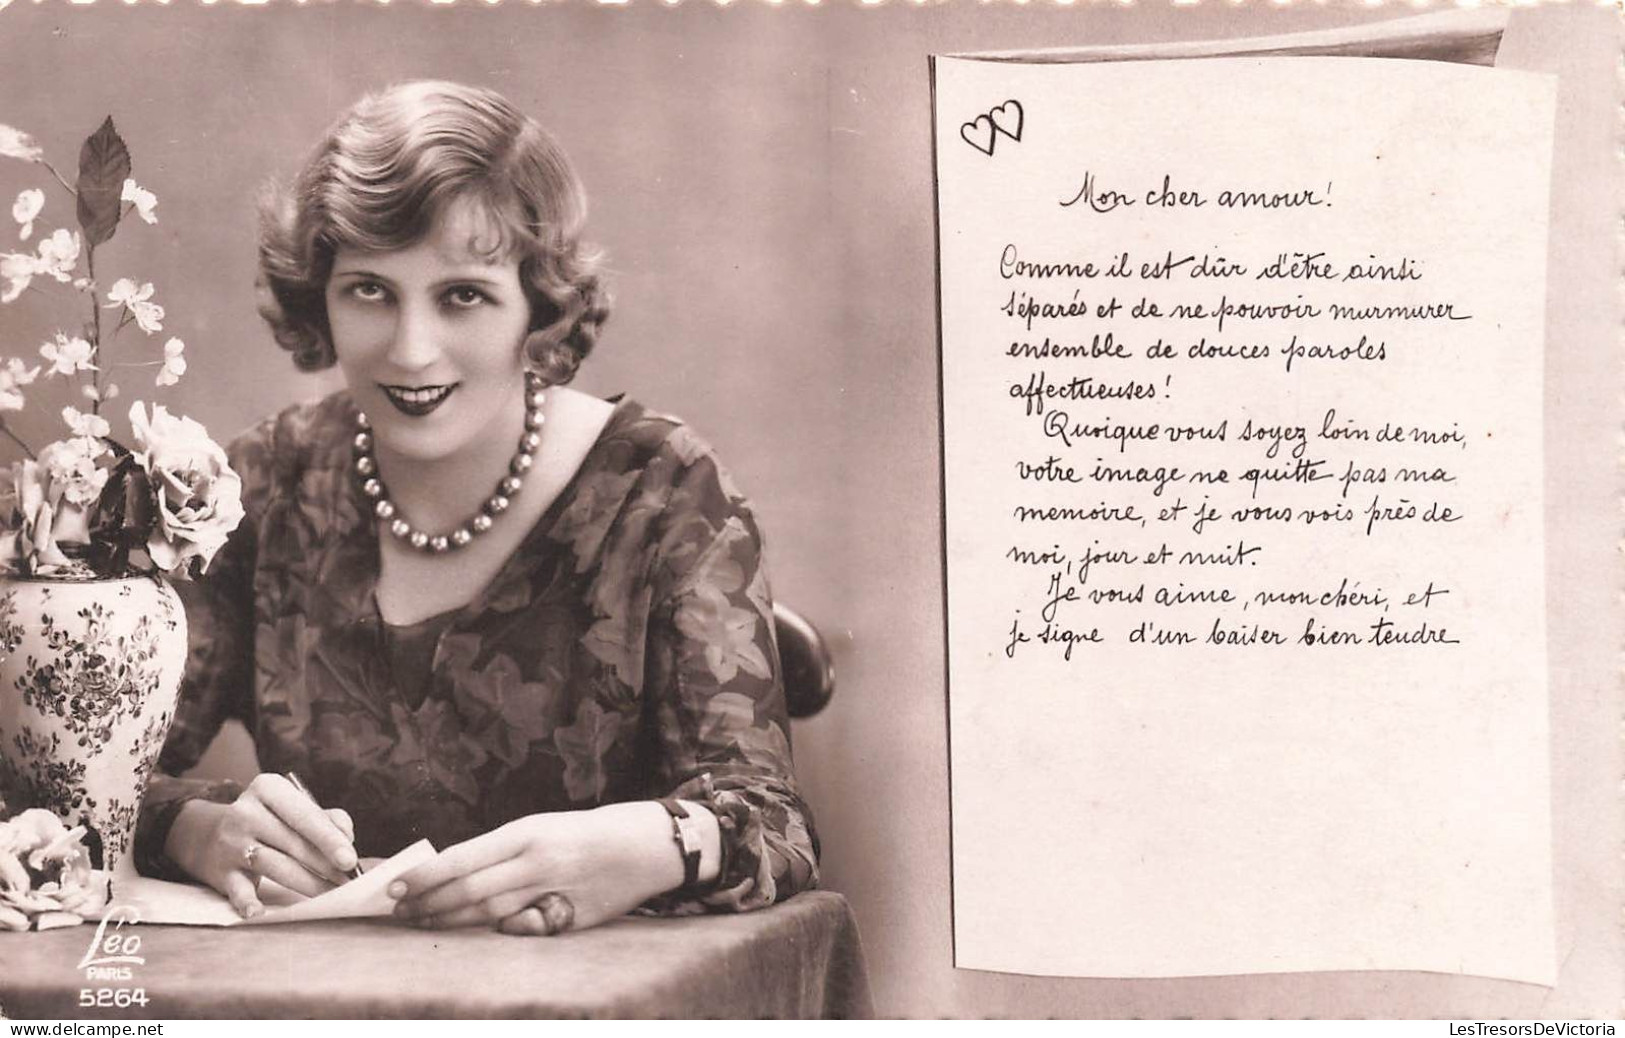 Mon cher amour!
Comme il est dûr d'être ainsi
séparés et de ne pouvoir murmurer
ensemble de douces paroles
affectueuses!
Quoique vous soyez loin de moi,
votre image ne quitte pas ma
memoire, et je vous vois près de
moi, jour et nuit.
Je vous aime, mon chéri, et
je signe d'un baiser bien tendre
Léo
PARIS
5264
www.delcampe.net
LesTresorsDeVictoria